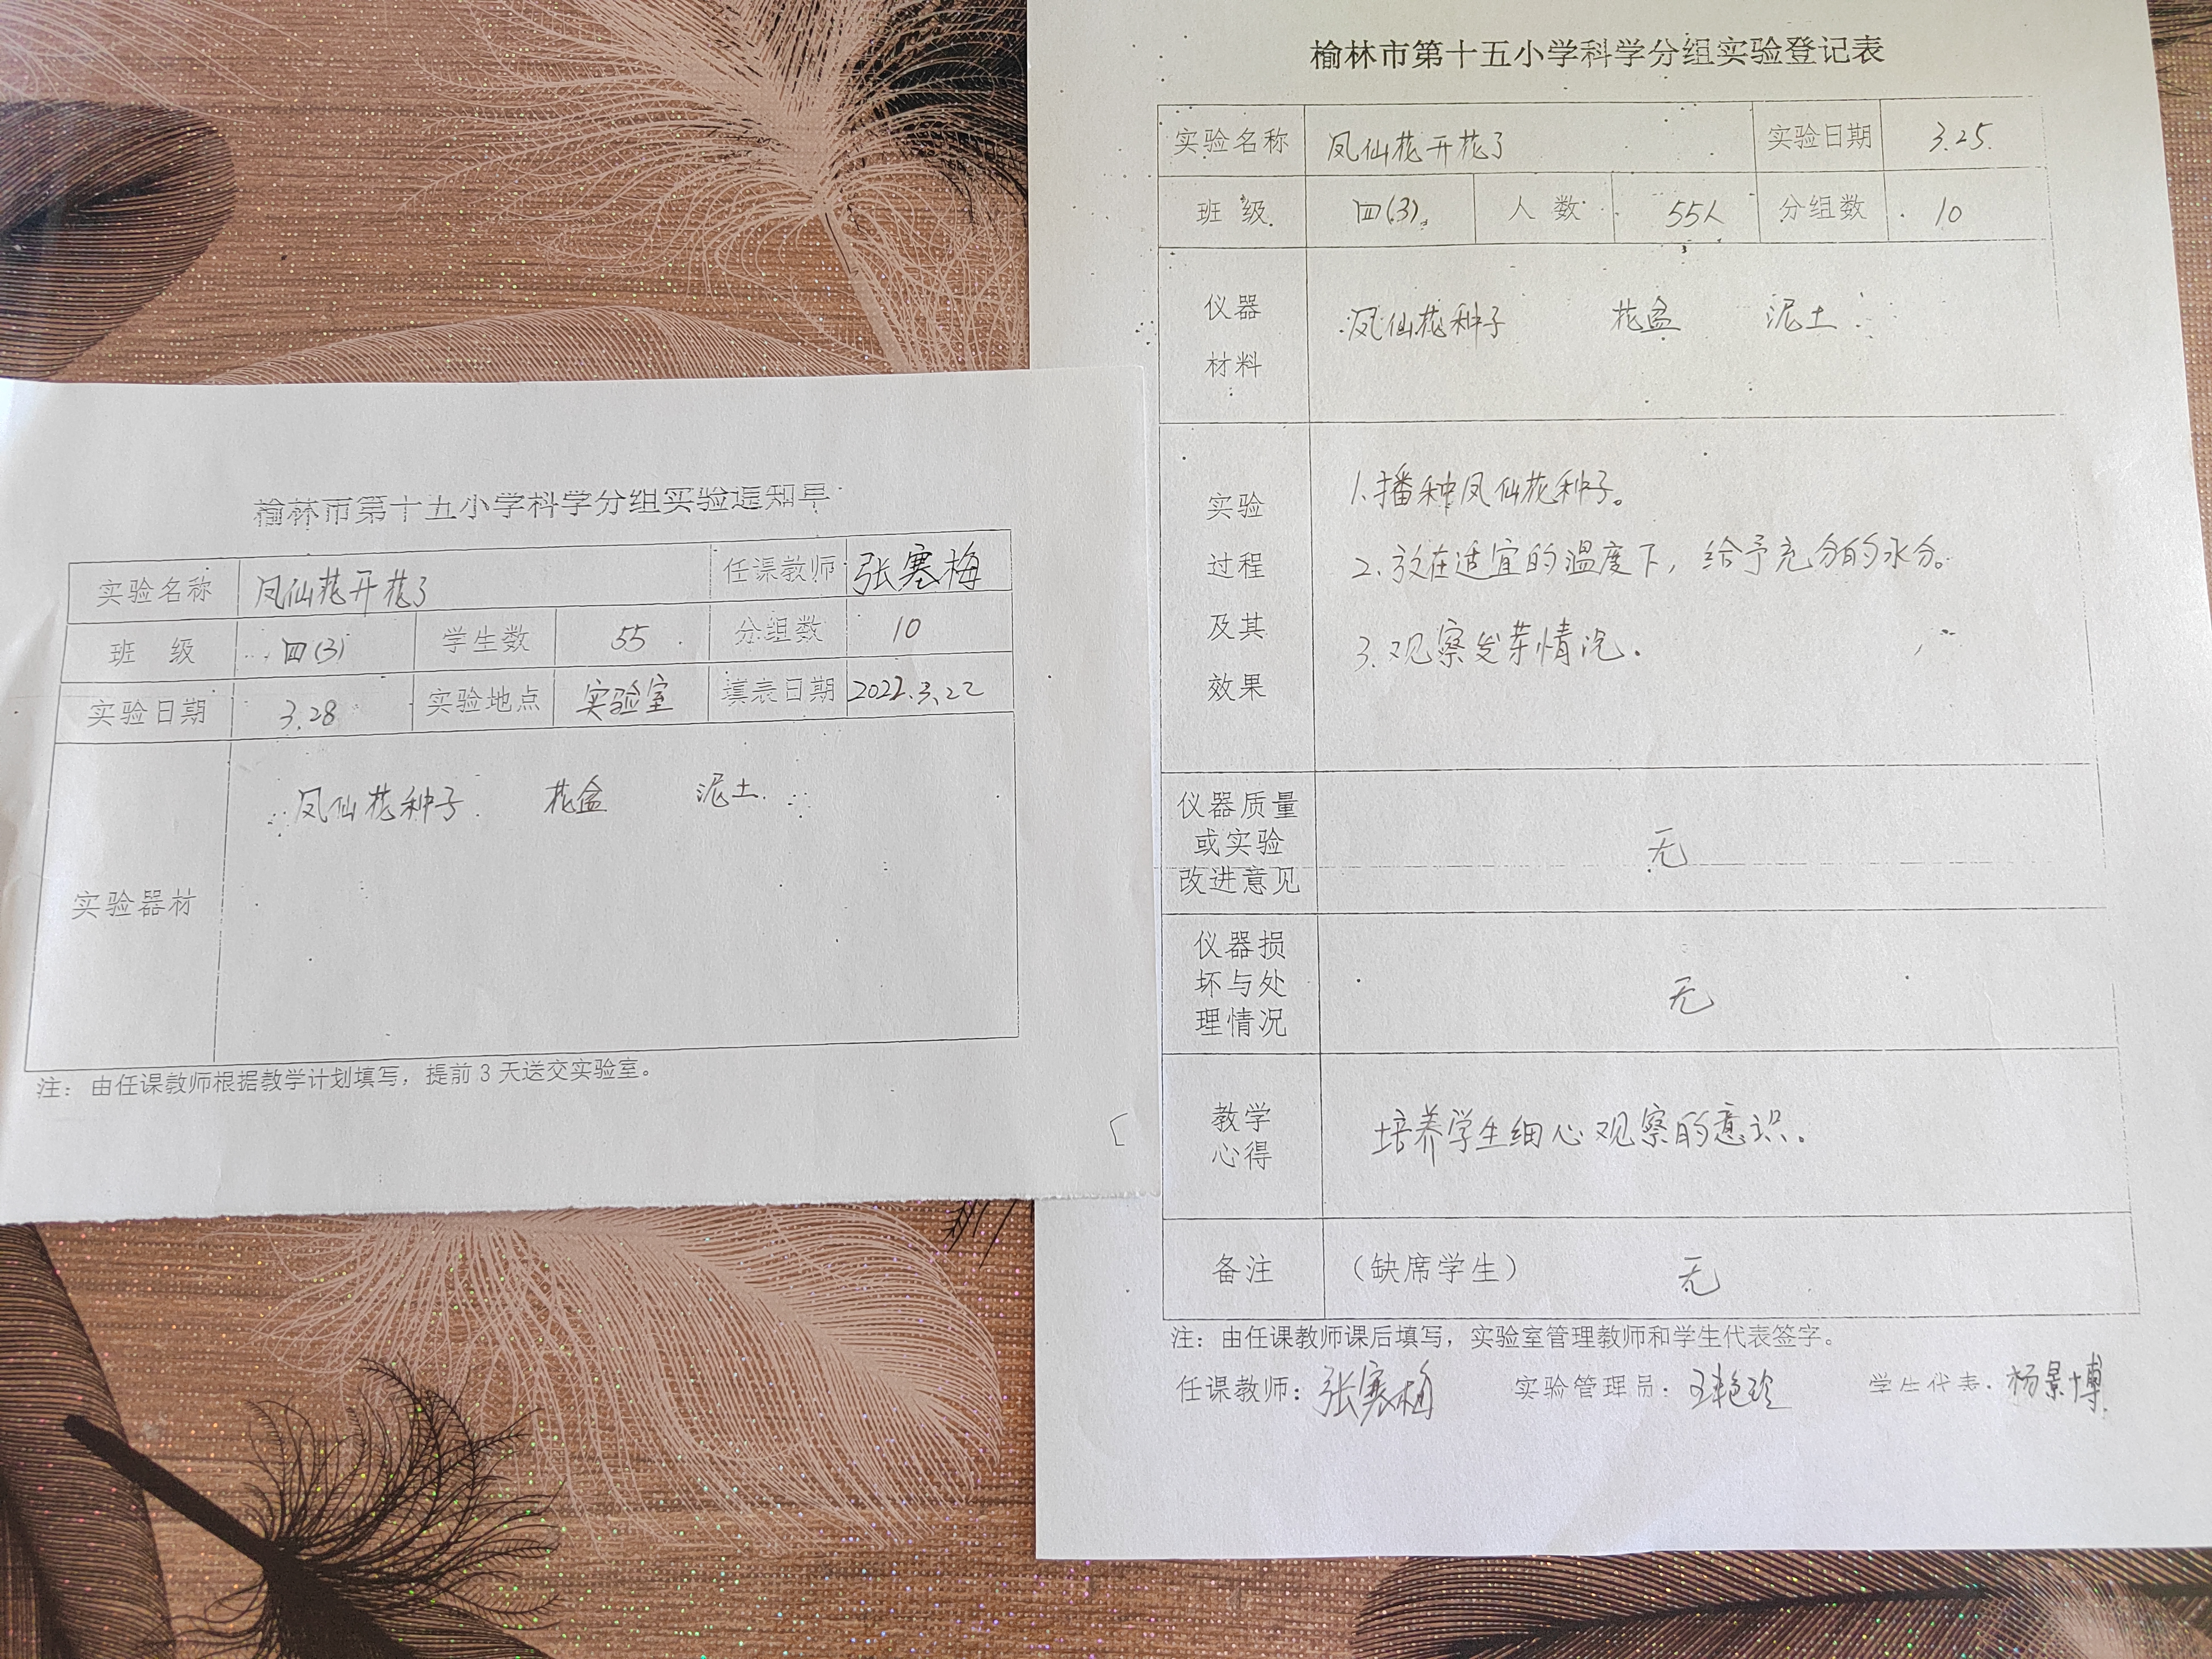 榆林市第十五小学科学分组实验通知单
实验名称 凤仙花开花了 任课教师 张塞梅
班 级 四(3) 学生数 55 分组数 10
实验日期 3.28 实验地点 实验室 填表日期 2022.3.22
实验器材 凤仙花种子 花盆 泥土
注：由任课教师根据教学计划填写，提前3天送交实验室。
榆林市第十五小学科学分组实验登记表
实验名称 凤仙花开花了 实验日期 3.25.
班 级 四(3) 人 数 55人 分组数 10
仪器
材料
凤仙花种子 花盆 泥土
实验
过程
及其
效果
1.播种凤仙花种子。
2.放在适宜的温度下，给予充分的水分。
3.观察发芽情况.
仪器质量
或实验
改进意见
无
仪器损
坏与处
理情况
无
教学
心得
培养学生细心观察的意识.
备注 （缺席学生） 无
注：由任课教师课后填写，实验室管理教师和学生代表签字。
任课教师：张塞梅 实验管理员：王艳玲 学生代表：杨景博